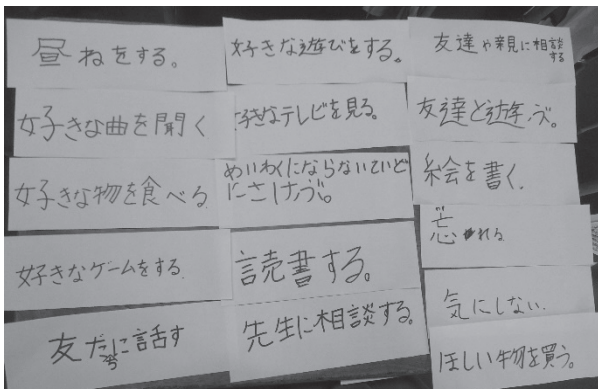 昼ねをする。
好きな曲を聞く
好きな物を食べる
好きなゲームをする
友だちに話す
好きな遊びをする。
好きなテレビを見る。
めいわくにならないていど
にさけぶ。
読書する。
先生に相談する。
友達や親に相談
する
友達と遊ぶ。
絵を書く。
忘れる
気にしない.
ほしい物を買う。